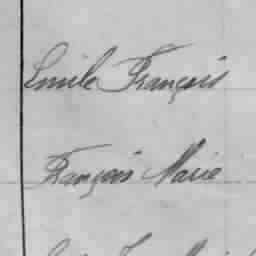 Emile François
François Marie